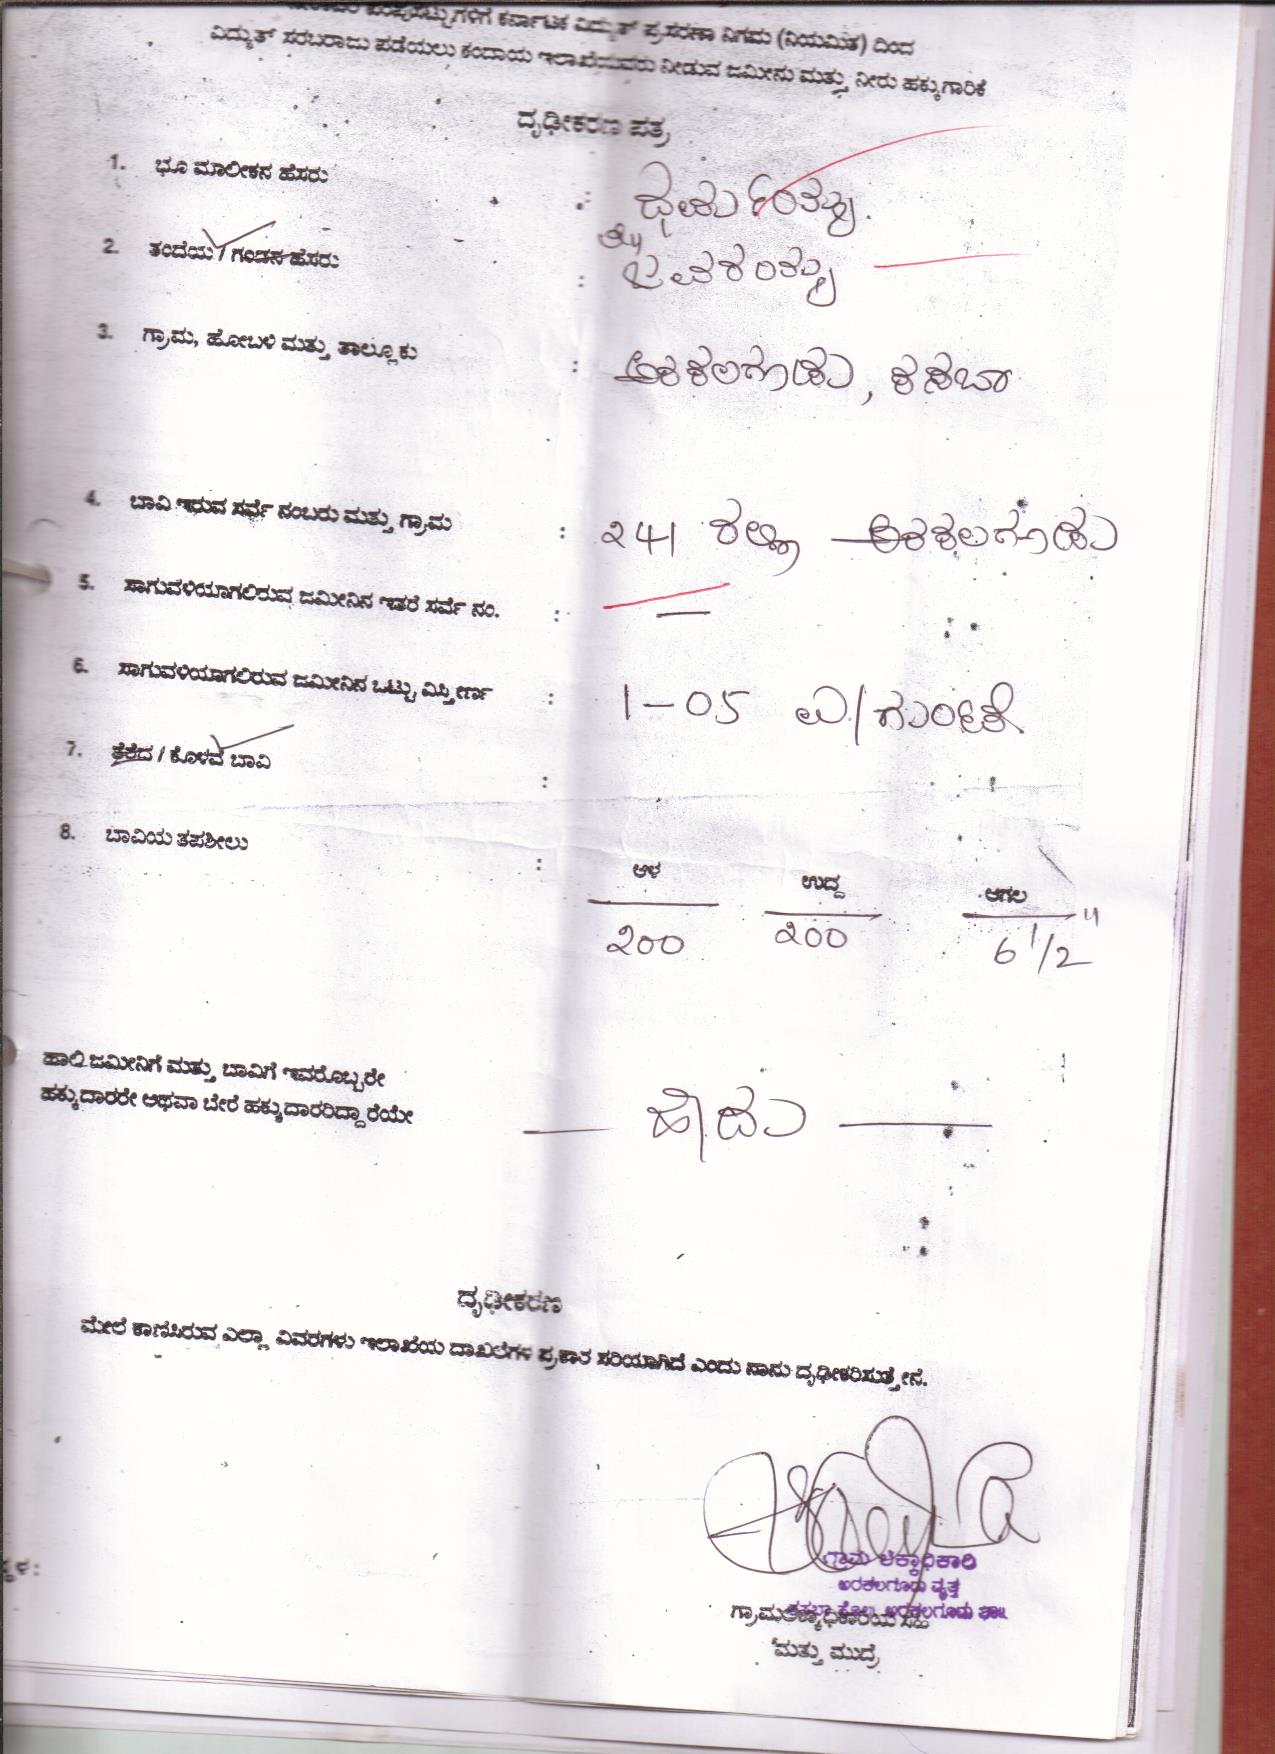 ಕರ್ನಾಟಕ ವಿದ್ಯುತ್ ಪ್ರಸರಣಾ ನಿಗಮ (ನಿಯಮಿತ) ದಿಂದ
ವಿದ್ಯುತ್ ಸರಬರಾಜು ಪಡೆಯಲು ಕಂದಾಯ ಇಲಾಖೆಯವರು ನೀಡುವ ಜಮೀನು ಮತ್ತು ನೀರು ಹಕ್ಕುಗಾರಿಕೆ
ದೃಢೀಕರಣ ಪತ್ರ
1. ಭೂ ಮಾಲೀಕನ ಹೆಸರು :
2. ತಂದೆಯ / ಗಂಡನ ಹೆಸರು :
3. ಗ್ರಾಮ, ಹೋಬಳಿ ಮತ್ತು ತಾಲ್ಲೂಕು : ಅರಕಲಗೂಡು, ಕಸಬಾ
4. ಬಾವಿ ಇರುವ ಸರ್ವೆ ನಂಬರು ಮತ್ತು ಗ್ರಾಮ : 241 ಅರಕಲಗೂಡು
5. ಸಾಗುವಳಿಯಾಗಲಿರುವ ಜಮೀನಿನ ಇತರೆ ಸರ್ವೆ ನಂ. : —
6. ಸಾಗುವಳಿಯಾಗಲಿರುವ ಜಮೀನಿನ ಒಟ್ಟು ವಿಸ್ತೀರ್ಣ : 1-05 ಎ/ಗುಂಟೆ
7. ತೆರೆದ / ಕೊಳವೆ ಬಾವಿ :
8. ಬಾವಿಯ ತಪಶೀಲು :
ಆಳ ಉದ್ದ ಅಗಲ
200 200 6 1/2"
ಹಾಲಿ ಜಮೀನಿಗೆ ಮತ್ತು ಬಾವಿಗೆ ಇವರೊಬ್ಬರೇ
ಹಕ್ಕುದಾರರೇ ಅಥವಾ ಬೇರೆ ಹಕ್ಕುದಾರರಿದ್ದಾರೆಯೇ — ಹೌದು —
ದೃಢೀಕರಣ
ಮೇಲೆ ಕಾಣಿಸಿರುವ ಎಲ್ಲಾ ವಿವರಗಳು ಇಲಾಖೆಯ ದಾಖಲೆಗಳ ಪ್ರಕಾರ ಸರಿಯಾಗಿದೆ ಎಂದು ನಾನು ದೃಢೀಕರಿಸುತ್ತೇನೆ.
ಗ್ರಾಮ ಲೆಕ್ಕಾಧಿಕಾರಿ
ಅರಕಲಗೂಡು ವೃತ್ತ
ಕಸಬಾ ಹೋಬಳಿ, ಅರಕಲಗೂಡು ತಾ॥
ಗ್ರಾಮಲೆಕ್ಕಾಧಿಕಾರಿಯ ಸಹಿ
ಮತ್ತು ಮುದ್ರೆ